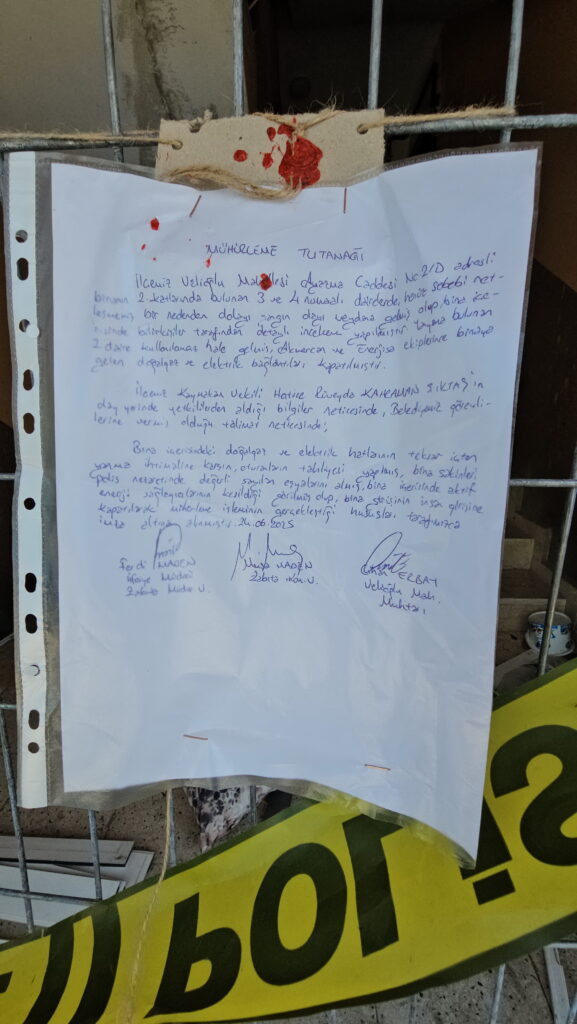 MÜHÜRLEME TUTANAĞI
İlçemiz Velioğlu Mahallesi Caddesi No:2/D adresli
binanın 2. katlarında bulunan 3 ve 4 numaralı dairelerde, henüz sebebi net-
leşmemiş bir nedenden dolayı yangın olayı meydana gelmiş olup, bina içe-
risinde bilirkişiler tarafından detaylı inceleme yapılmıştır. bulunan
2 daire kullanılmaz hale gelmiş, Akmercan ve Enerjisa ekiplerince binaya
gelen doğalgaz ve elektrik bağlantıları kapatılmıştır.
İlçemiz Kaymakam Vekili Hatice Rüveyda KAHRAMAN 'ın
olay yerinde yetkililerden aldığı bilgiler neticesinde, Belediyemiz görevli-
lerine vermiş olduğu talimat neticesinde;
Bina içerisindeki doğalgaz ve elektrik hatlarının tekrar içten
yanma ihtimaline karşın, oturanların tahliyesi yapılmış, bina sakinleri
polis nezaretinde değerli sayılan eşyalarını almış, bina içerisinde aktif
enerji sağlayıcılarının kesildiği görülmüş olup, bina girişinin insan girişine
kapatılarak mühürleme işleminin gerçekleştiği hususları tarafımızca
imza altına alınmıştır. 24.06.2025
Ferdi MADEN
İtfaiye Müdürü
Zabıta Müdür V.
Musa MADEN
Zabıta V.
ERBAY
Velioğlu Mah.
Muhtarı
POLİS